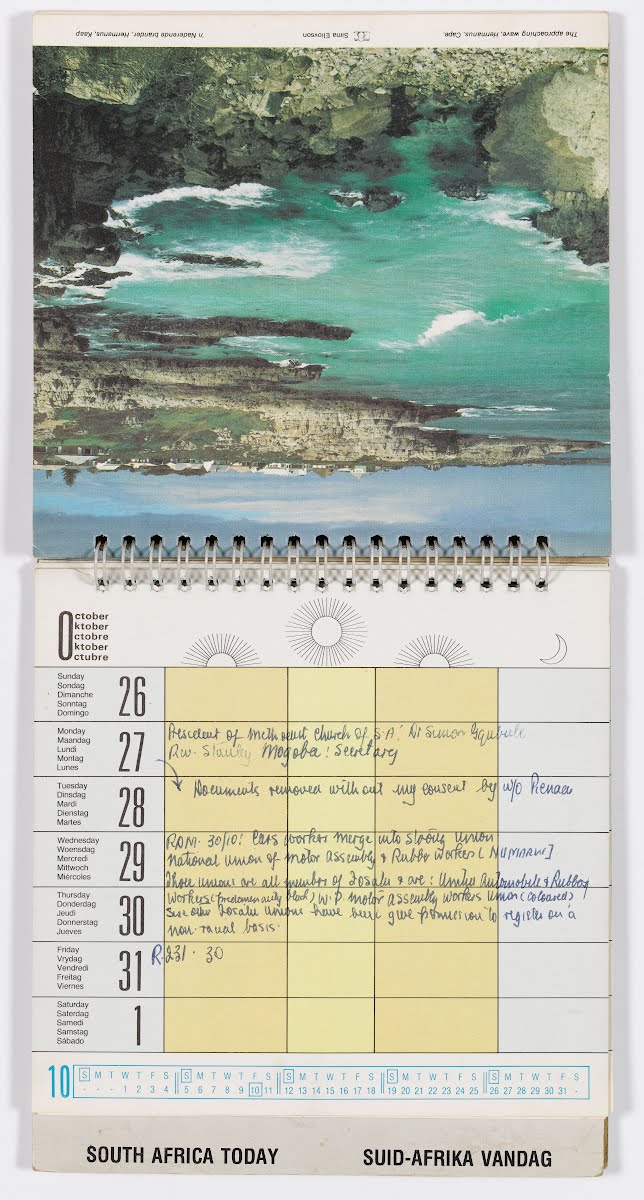 'n Naderende brander, Hermanus, Kaap
Sima Eliovson
The approaching wave, Hermanus, Cape.
October
Oktober
Octobre
Oktober
Octubre
Sunday
Sondag
Dimanche
Sonntag
Domingo
26
Monday
Maandag
Lundi
Montag
Lunes
27
President of Methodist Church of S.A: Dr Simon Gqubule
Rev. Stanley Mogoba: Secretary
Tuesday
Dinsdag
Mardi
Dienstag
Martes
28
Documents removed without my consent by w/o Pienaar
Wednesday
Woensdag
Mercredi
Mittwoch
Miércoles
29
RDM. 30/10: Cars worker merge into strong union
National union of motor assembly & Rubber Workers [NUMARW]
Three unions are all member of Fosatu & are: United Automobile & Rubber
Thursday
Donderdag
Jeudi
Donnerstag
Jueves
30
Workers (predominantly black), W.P. motor assembly workers Union (coloured)
other Fosatu unions have been give permission to register on a
non-racial basis.
Friday
Vrydag
Vendredi
Freitag
Viernes
31
R.231 . 30
Saturday
Saterdag
Samedi
Samstag
Sábado
1
10
S M T W T F S S M T W T F S S M T W T F S S M T W T F S S M T W T F S
- - - 1 2 3 4 5 6 7 8 9 10 11 12 13 14 15 16 17 18 19 20 21 22 23 24 25 26 27 28 29 30 31 -
SOUTH AFRICA TODAY
SUID-AFRIKA VANDAG